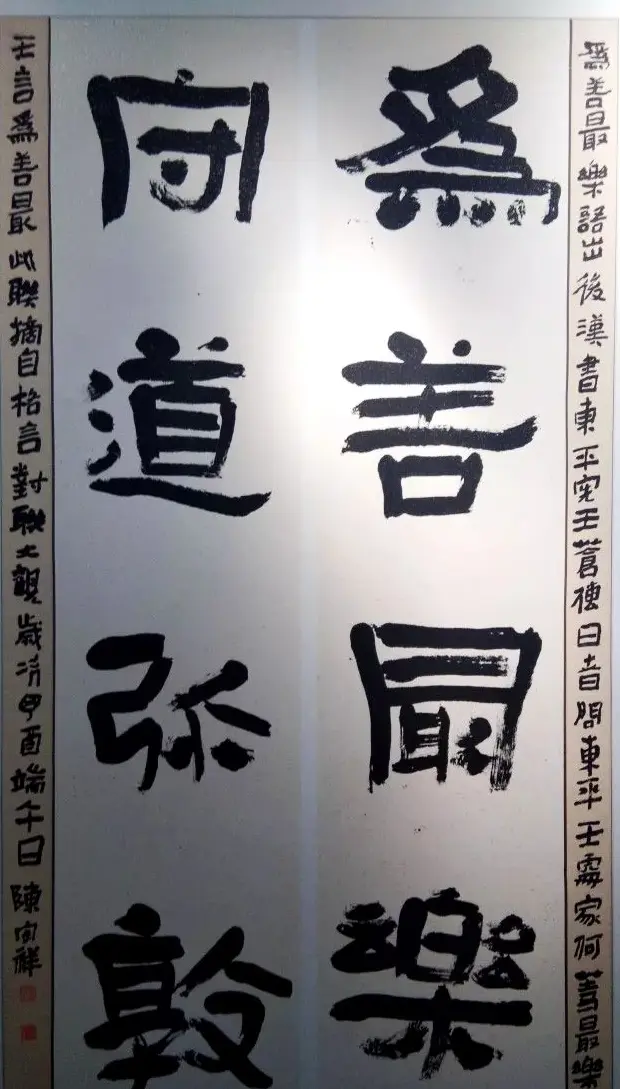 爲善最樂語出後漢書東平宪王蒼傳日者問東平王處家何等最樂
爲善最樂
守道弥敦
王言爲善最此聯摘自格言對聯大觀歲次酉端午日陳祥